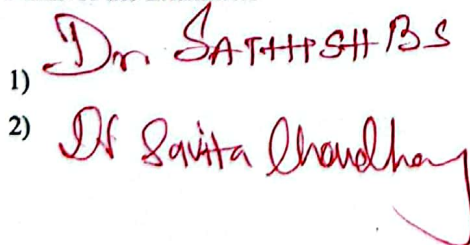 1) Dr SATHISH BS
2) Dr Savita Choudhary